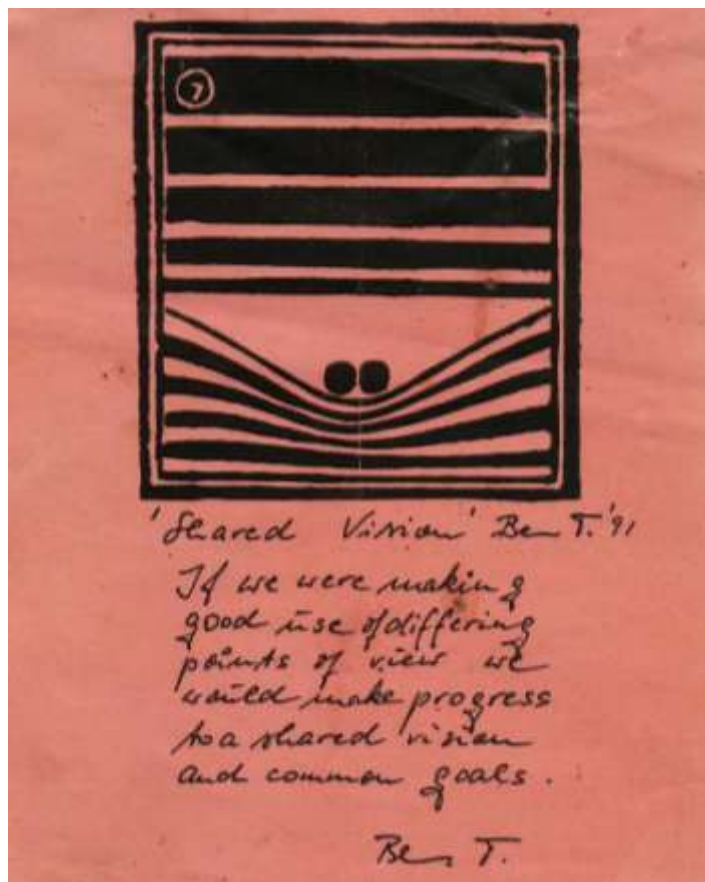 7
'Shared Vision' Ben T. '91
If we were making
good use of differing
points of view we
would make progress
to a shared vision
and common goals.
Ben T.